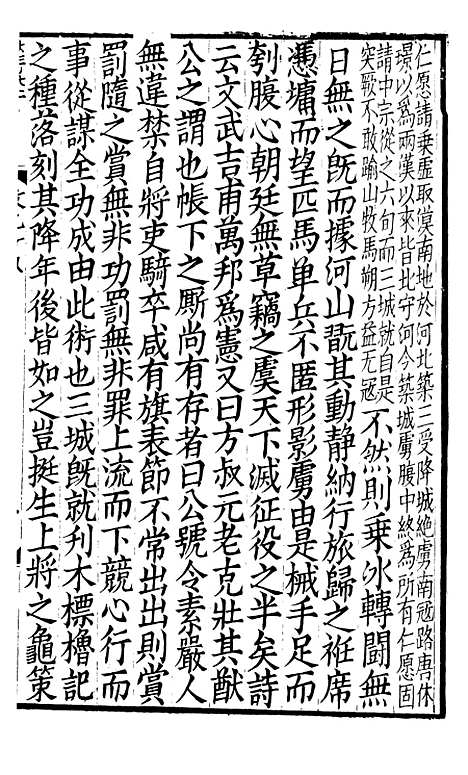 仁愿請乗虛取漠南地於河北築三受降城絶虜南冦路唐休
璟以爲兩漢以來皆北守河今築城虜腹中終爲所有仁愿固
請中宗從之六旬而三城就自是
突厥不敢踰山牧馬朔方益无冦不然則乗氷轉鬭無
日無之旣而據河山翫其動静納行旅歸之袵席
慿墉而望匹馬单兵不匿形影虜由是械手足而
刳腹心朝廷無草竊之虞天下減征役之半矣詩
云文武吉甫萬邦爲憲又曰方叔元老克壯其猷
公之謂也帳下之厮尚有存者曰公號令素嚴人
無違禁自將吏騎卒咸有旗表節不常出出則賞
罰隨之賞無非功罰無非罪上流而下競心行而
事從謀全功成由此術也三城旣就刋木標櫓記
之種落刻其降年後皆如之豈挺生上將之龜策